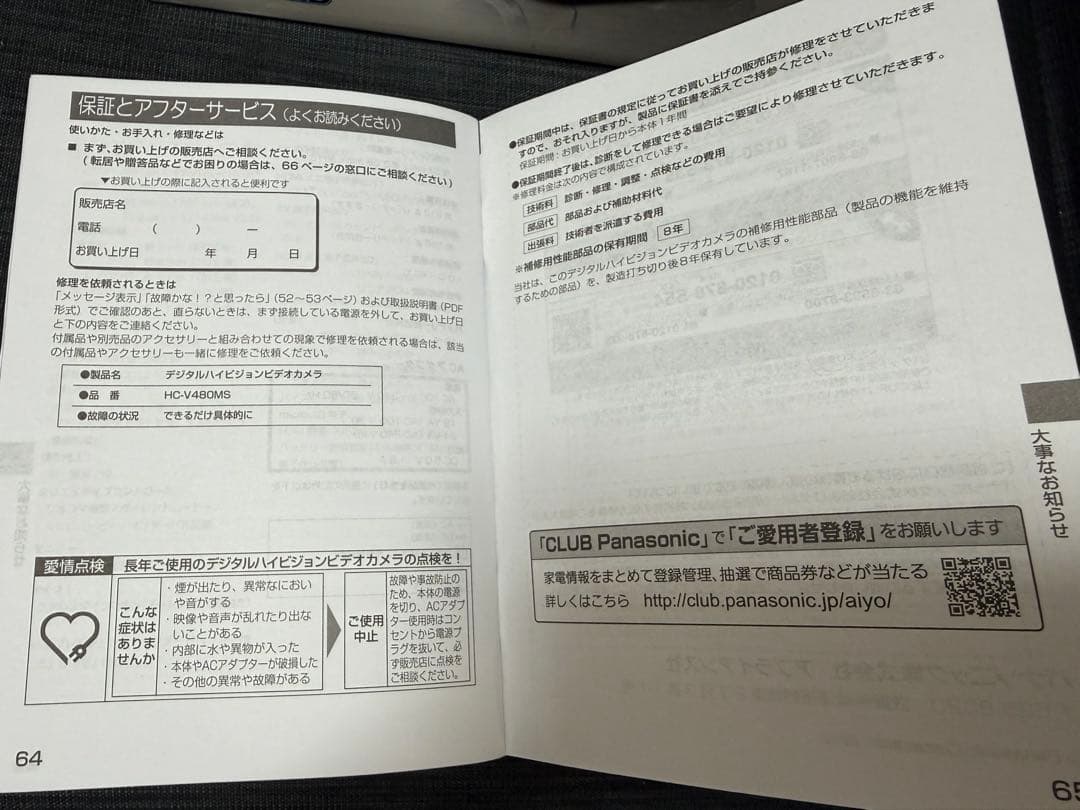 保証とアフターサービス（よくお読みください）
使いかた・お手入れ・修理などは
■ まず、お買い上げの販売店へご相談ください。
（転居や贈答品などでお困りの場合は、66 ページの窓口にご相談ください）
▼お買い上げの際に記入されると便利です
販売店名
電話 （ ） ー
お買い上げ日 年 月 日
修理を依頼されるときは
「メッセージ表示」「故障かな！？と思ったら」（52～53ページ）および取扱説明書（PDF
形式）でご確認のあと、直らないときは、まず接続している電源を外して、お買い上げ日
と下の内容をご連絡ください。
付属品や別売品のアクセサリーと組み合わせての現象で修理を依頼される場合は、該当
の付属品やアクセサリーも一緒に修理をご依頼ください。
●製品名 デジタルハイビジョンビデオカメラ
●品 番 HC-V480MS
●故障の状況 できるだけ具体的に
愛情点検 長年ご使用のデジタルハイビジョンビデオカメラの点検を！
こんな
症状は
ありま
せんか
・煙が出たり、異常なにおい
や音がする
・映像や音声が乱れたり出な
いことがある
・内部に水や異物が入った
・本体やACアダプターが破損した
・その他の異常や故障がある
ご使用
中止
故障や事故防止の
ため、本体の電源
を切り、ACアダプ
ター使用時はコン
セントから電源プ
ラグを抜いて、必
ず販売店に点検を
ご相談ください。
64
●保証期間中は、保証書の規定に従ってお買い上げの販売店が修理をさせていただきま
すので、おそれ入りますが、製品に保証書を添えてご持参ください。
保証期間：お買い上げ日から本体１年間
●保証期間終了後は、診断をして修理できる場合はご要望により修理させていただきます。
※修理料金は次の内容で構成されています。
技術料 診断・修理・調整・点検などの費用
部品代 部品および補助材料代
出張料 技術者を派遣する費用
※補修用性能部品の保有期間 8年
当社は、このデジタルハイビジョンビデオカメラの補修用性能部品（製品の機能を維持
するための部品）を、製造打ち切り後８年保有しています。
大事なお知らせ
「CLUB Panasonic」で「ご愛用者登録」をお願いします
家電情報をまとめて登録管理、抽選で商品券などが当たる
詳しくはこちら http://club.panasonic.jp/aiyo/
65